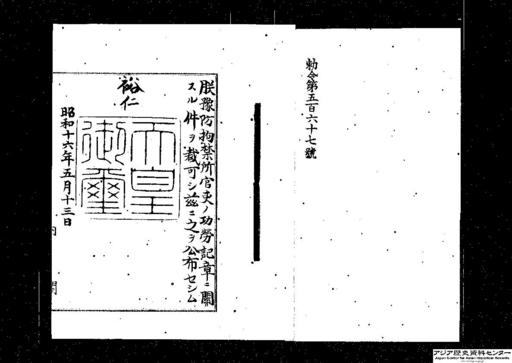 勅令第五百六十七號
朕豫防拘禁所官吏ノ功勞記章ニ關
スル件ヲ裁可シ茲ニ之ヲ公布セシム
裕仁
天皇
御璽
昭和十六年五月十三日
内閣
アジア歴史資料センター
Japan Center for Asian Historical Records